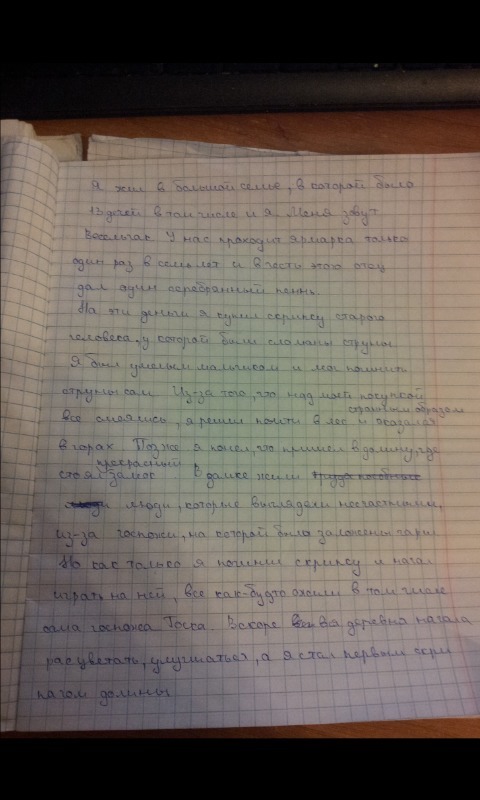 Я жил в большой семье, в которой было
13 детей в том числе и я. Меня зовут
Весельчак. У нас проходит ярмарка только
один раз в семь лет и в честь этого отец
дал один серебрянный пенни.
На эти деньги я купил скрипку старого
человека, у которой были сломаны струны
Я был умелым мальчиком и мог починить
струны сам. Из-за того, что над моей покупкой
все смеялись, я решил пойти в лес и странным образом оказался
в горах. Позже я понял, что пришёл в долину, где
стоял прекрасный замок. В замке жили
люди, которые выглядели несчастными,
из-за госпожи, на которой были заложены чары.
Но как только я починил скрипку и начал
играть на ней, все как-будто ожили в том числе
сама госпожа Тоска. Вскоре вся деревня начала
расцветать, улучшаться, а я стал первым скри
пачом долины